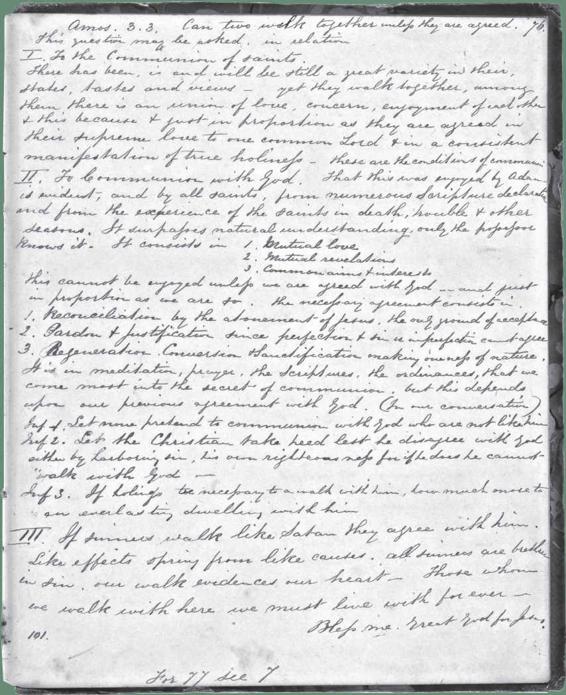 Amos. 3. 3. Can two walk together unless they are agreed. 76.
This question may be asked, in relation
I. To the Communion of saints.
There has been, is and will be still a great variety in their,
states, tastes and views – yet they walk together, among
them there is an union of love, concern, enjoyment of each other
& this because & just in proportion as they are agreed in
their supreme love to one common Lord & in a consistent
manifestation of true holiness – these are the conditions of communion
II. To Communion with God. That this was enjoyed by Adam
is evident, and by all saints, from numerous Scripture declarations
and from the experience of the saints in death, trouble & other
seasons. It surpasses natural understanding, only the possessor
knows it. It consists in 1. Mutual love
2. Mutual revelations
3. Common aims & interests
This cannot be enjoyed unless we are agreed with God – and just
in proportion as we are so. the necessary agreement consists in
1. Reconciliation by the atonement of Jesus, the only ground of acceptance
2. Pardon & Justification since perfection & sin is imperfection cannot agree
3. Regeneration. Conversion Sanctification making oneness of nature.
It is in meditation, prayer, the Scriptures, the ordinances, that we
come most into the secret of communion. but this depends
upon our previous agreement with God. (In our conversation)
Inf 1. Let none pretend to communion with God who are not like him
Inf 2. Let the Christian take heed lest he disagree with God
either by harboring sin, his own righteousness for if he does he cannot
"walk with God –
Inf 3. If holiness be necessary to a walk with him, how much more to
an everlasting dwelling with him
III. If sinners walk like Satan they agree with him.
Like effects spring from like causes. all sinners are brethren
in sin. our walk evidences our heart – Those whom
we walk with here we must live with for ever –
Bless me. Great God for Jesus.
101.
For 77 see 7